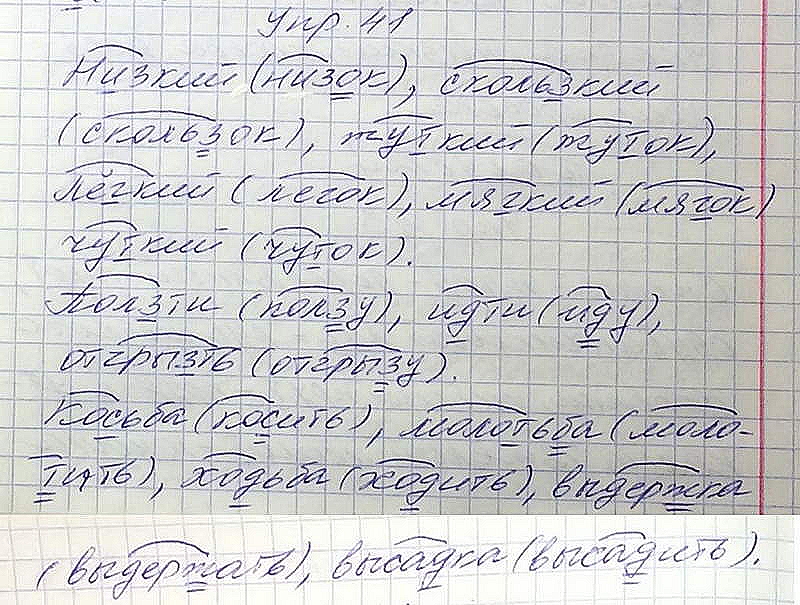 Упр. 41
Низкий (низок), скользкий
(скользок), жуткий (жуток),
лёгкий (легок), мягкий (мягок)
чуткий (чуток).
Ползти (ползу), идти (иду),
отгрызть (отгрызу).
Косьба (косить), молотьба (моло-
тить), ходьба (ходить), выдержка
(выдержать), высадка (высадить).